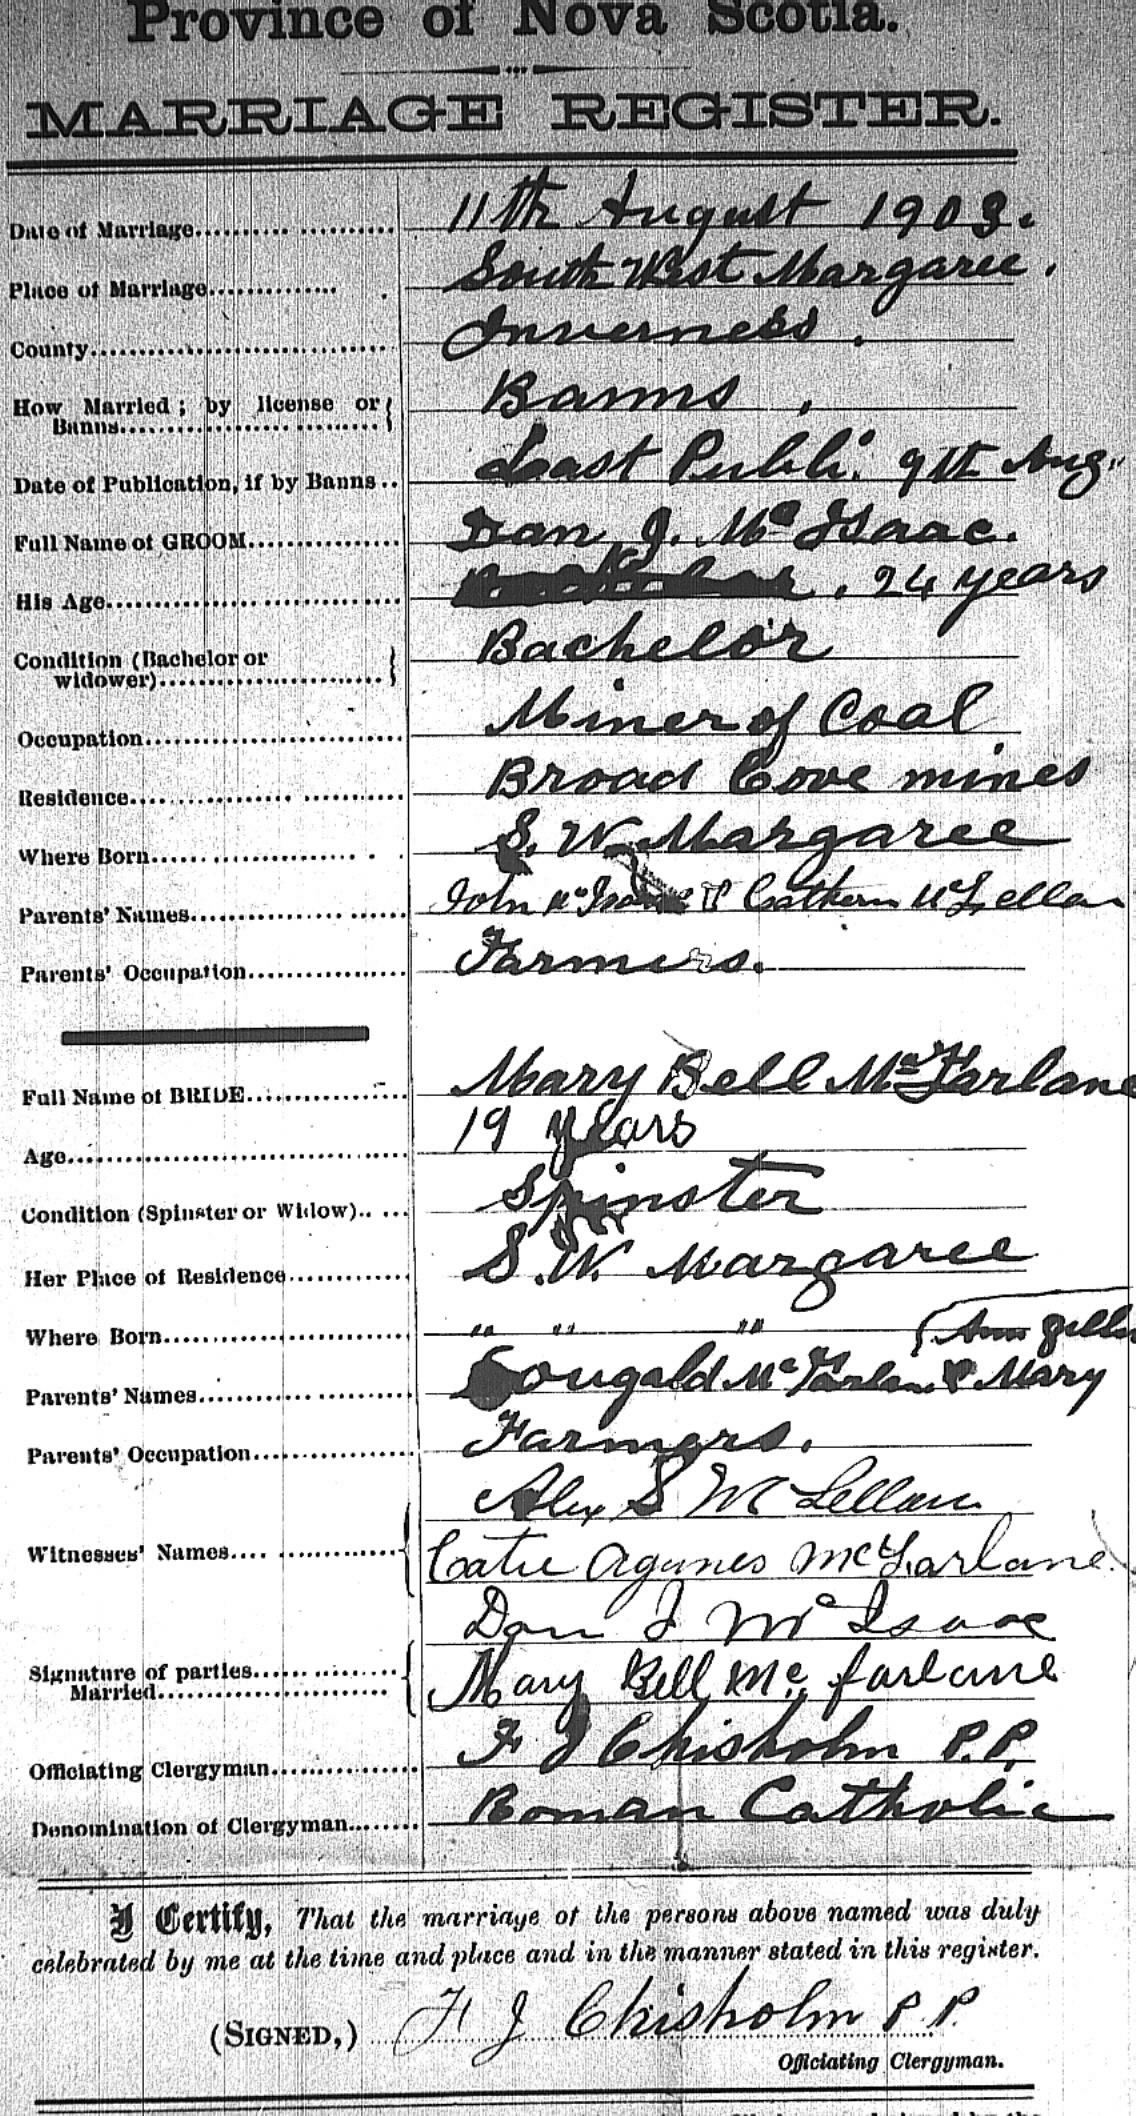 Province of Nova Scotia.
MARRIAGE REGISTER.
Date of Marriage 11th August 1903.
Place of Marriage South West Margaree.
County Inverness.
How Married; by license or Banns Banns.
Date of Publication, if by Banns Last Publi. 9th Aug.
Full Name of GROOM Dan J. McIsaac.
His Age 24 years
Condition (Bachelor or widower) Bachelor
Occupation Miner of Coal
Residence Broad Cove mines
Where Born S. W. Margaree
Parents' Names John McIsaac & Cathern McLellan
Parents' Occupation Farmers.
Full Name of BRIDE Mary Bell McFarlane
Age 19 years
Condition (Spinster or Widow) Spinster
Her Place of Residence S. W. Margaree
Where Born " " "
Ann
Parents' Names Dougald McFarlane & Mary
Parents' Occupation Farmers.
Alex S McLellan
Witnesses' Names Catie Agunes McFarlane.
Dan J McIsaac
Signature of parties Married Mary Bell Mc farlane
Officiating Clergyman F J Chisholm P.P.
Denomination of Clergyman Roman Catholic
I Certify, That the marriage of the persons above named was duly
celebrated by me at the time and place and in the manner stated in this register.
(SIGNED,) F J Chisholm P.P.
Officiating Clergyman.